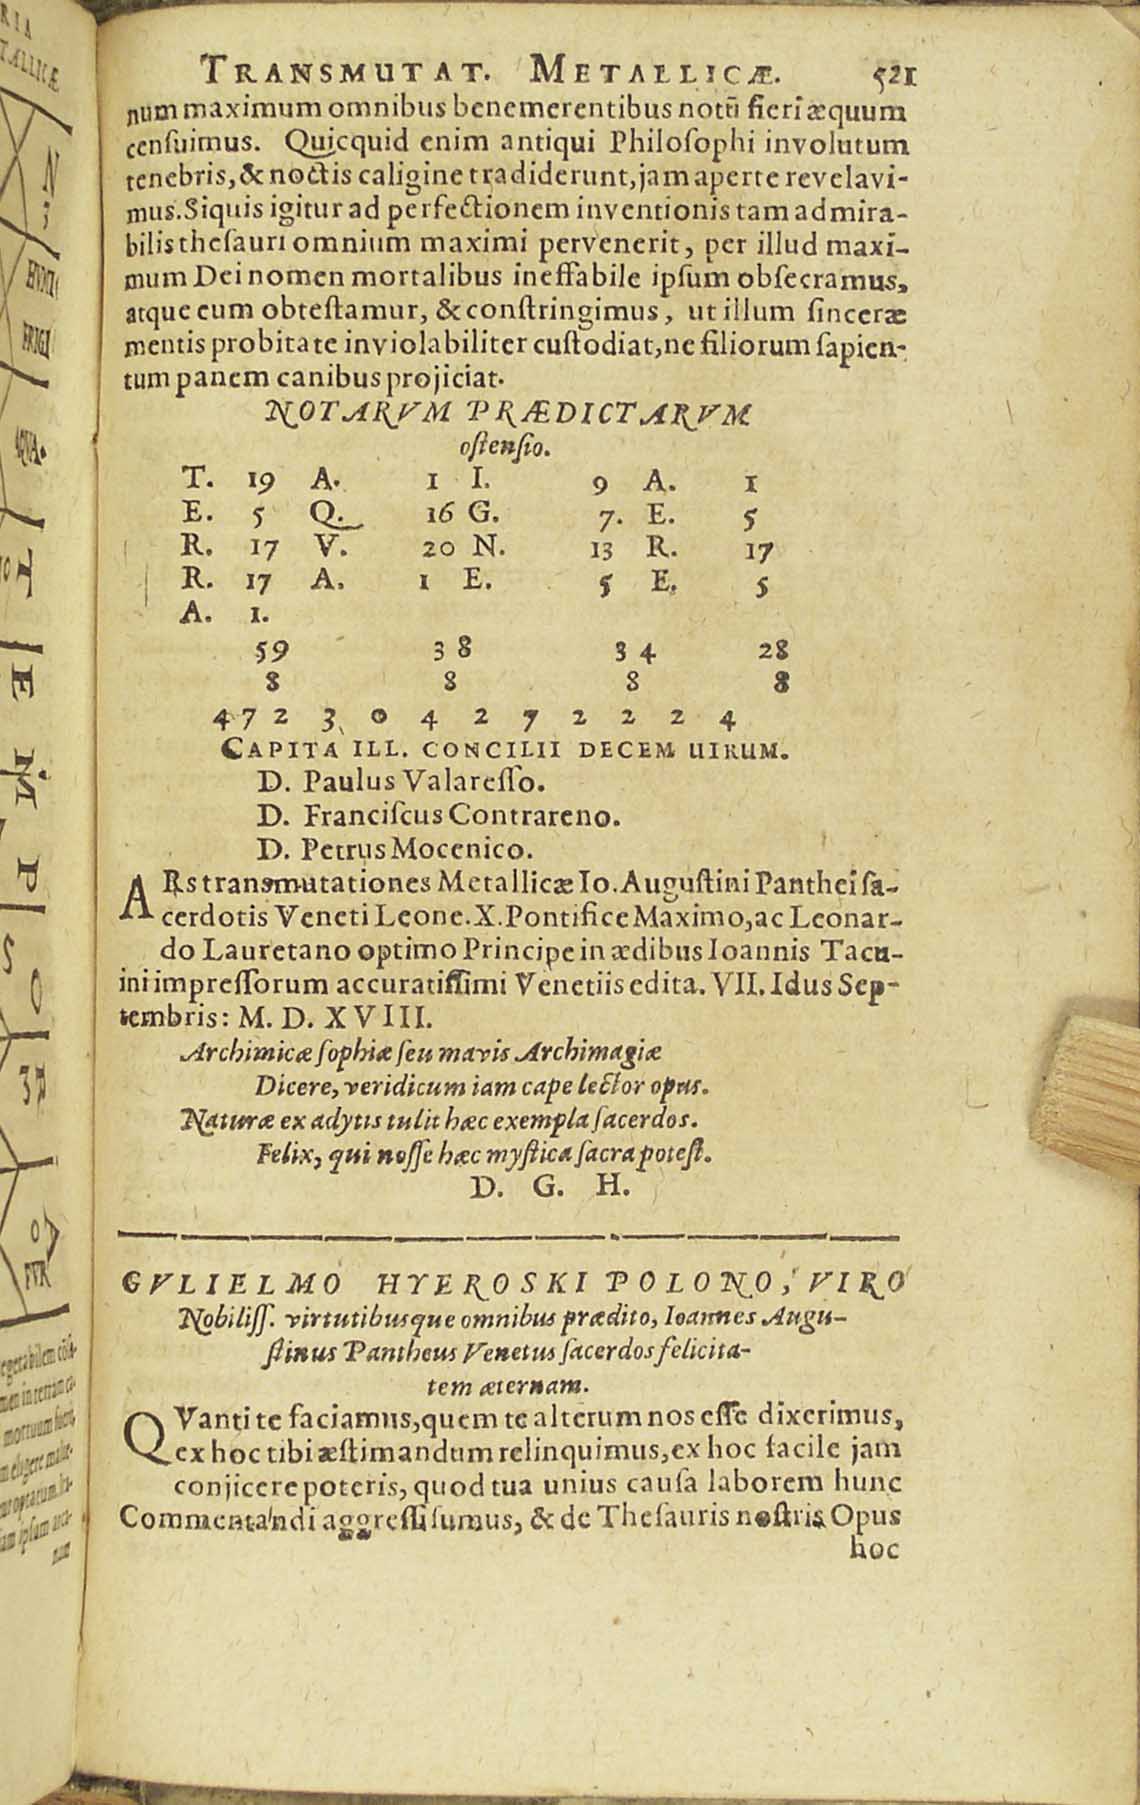 TRANSMUTAT. METALLICÆ. 521
num maximum omnibus benemerentibus notũ fieri æquum
censuimus. Quicquid enim antiqui Philosophi involutum
tenebris, & noctis caligine tradiderunt, jam aperte revelavi-
mus. Siquis igitur ad perfectionem inventionis tam admira-
bilis thesauri omnium maximi pervenerit, per illud maxi-
mum Dei nomen mortalibus ineffabile ipsum obsecramus,
atque eum obtestamur, & constringimus, ut illum sinceræ
mentis probitate inviolabiliter custodiat, ne filiorum sapien-
tum panem canibus projiciat.
NOTARVM PRÆDICTARVM
ostensio.
T. 19 A. 1 I. 9 A. 1
E. 5 Q. 16 G. 7. E. 5
R. 17 V. 20 N. 13 R. 17
R. 17 A. 1 E. 5 E. 5
A. 1.
59 38 34 28
8 8 8 8
4 7 2 3 0 4 2 7 2 2 2 4
CAPITA ILL. CONCILII DECEM UIRUM.
D. Paulus Valaresso.
D. Franciscus Contrareno.
D. Petrus Mocenico.
ARs transmutationes Metallicæ Io. Augustini Panthei sa-
cerdotis Veneti Leone. X. Pontifice Maximo, ac Leonar-
do Lauretano optimo Principe in ædibus Ioannis Tacu-
ini impressorum accuratissimi Venetiis edita. VII. Idus Sep-
tembris: M. D. XVIII.
Archimicæ sophiæ seu mavis Archimagiæ
Dicere, veridicum iam cape lector opus.
Naturæ ex adytis tulit hæc exempla sacerdos.
Felix, qui nosse hæc mystica sacra potest.
D. G. H.
GVLIELMO HYEROSKI POLONO, VIRO
Nobiliss. virtutibusque omnibus prædito, Ioannes Augu-
stinus Pantheus Venetus sacerdos felicita-
tem æternam.
QVanti te faciamus, quem te alterum nos esse dixerimus,
ex hoc tibi æstimandum relinquimus, ex hoc facile jam
conjicere poteris, quod tua unius causa laborem hunc
Commentandi aggressi sumus, & de Thesauris nostris Opus
hoc